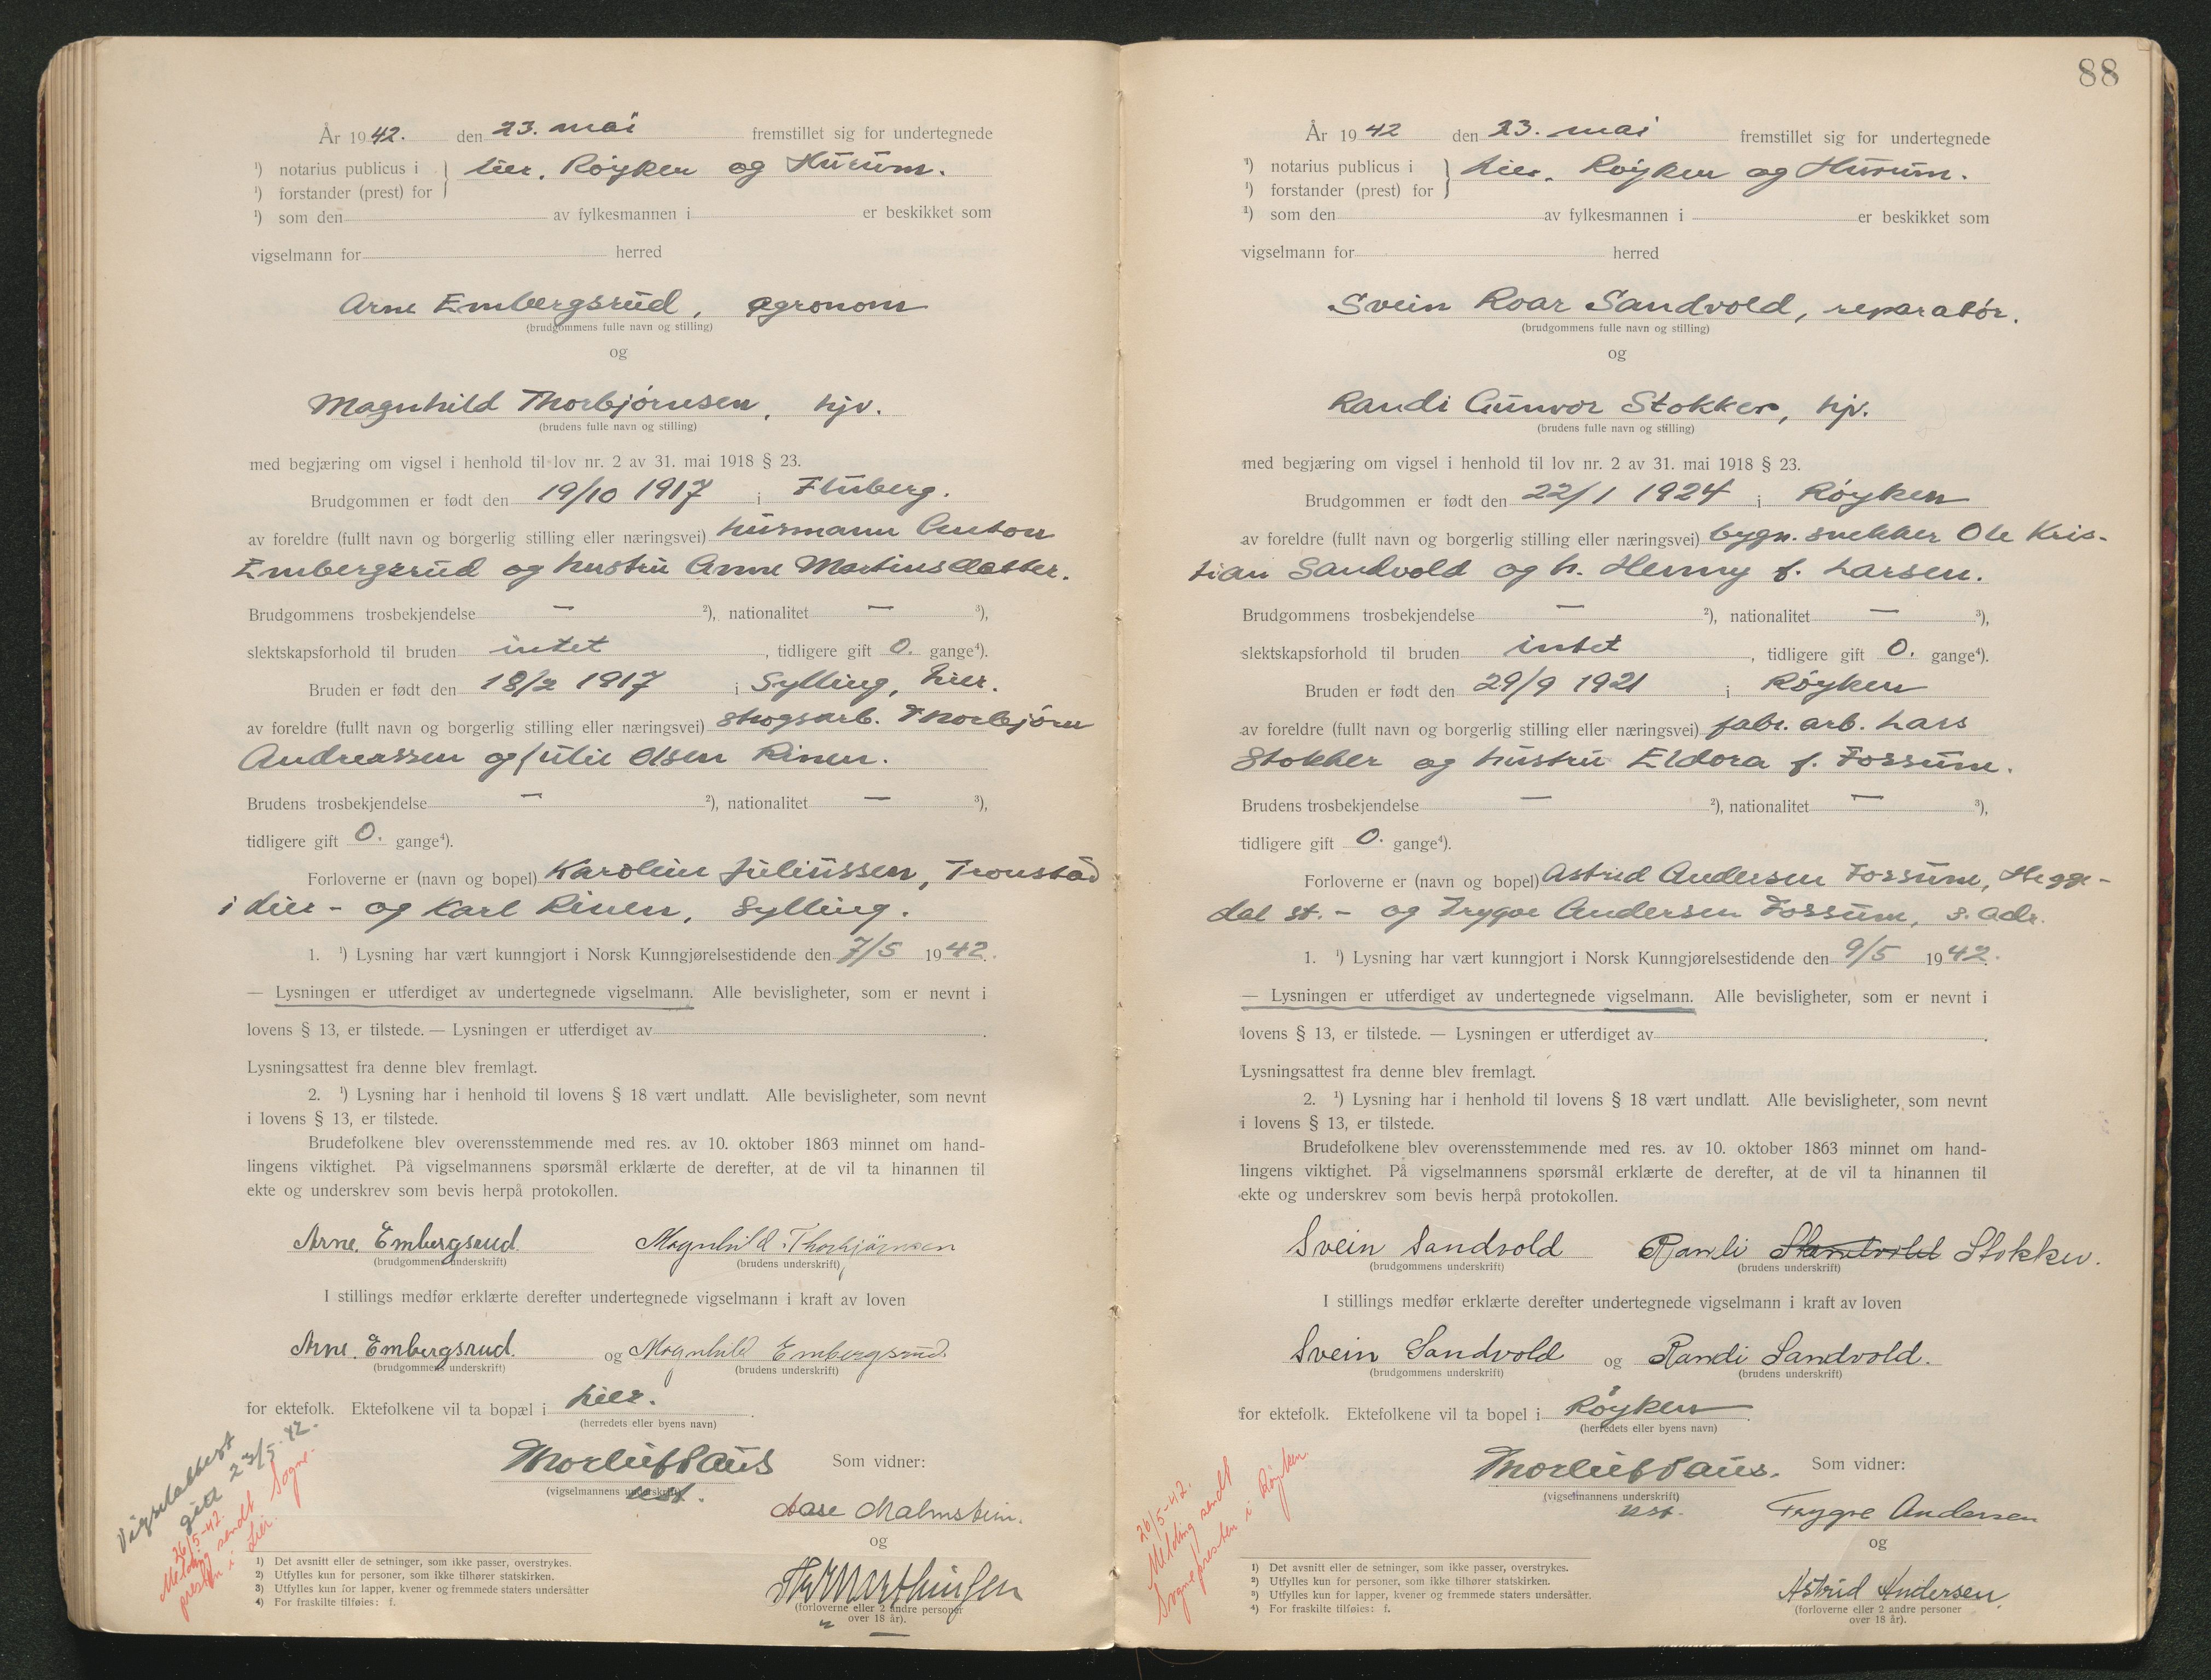 År 1942. den 23. mai fremstillet sig for undertegnede
¹) notarius publicus i } Lier, Røyken og Hurum.
¹) forstander (prest) for
¹) som den av fylkesmannen i er beskikket som
vigselmann for herred
Arne Embergsrud, agronom
(brudgommens fulle navn og stilling)
og
Magnhild Thorbjørnsen, hjv.
(brudens fulle navn og stilling)
med begjæring om vigsel i henhold til lov nr. 2 av 31. mai 1918 § 23.
Brudgommen er født den 19/10 1917 i Fluberg.
av foreldre (fullt navn og borgerlig stilling eller næringsvei) husmann Anton
Embergsrud og hustru Anne Martinsdatter.
Brudgommens trosbekjendelse — ²), nationalitet — ³),
slektskapsforhold til bruden intet, tidligere gift 0. gange⁴).
Bruden er født den 18/2 1917 i Sylling, Lier.
av foreldre (fullt navn og borgerlig stilling eller næringsvei) skogsarb. Thorbjørn
Andreassen og Julie Olsen Rinen.
Brudens trosbekjendelse — ²), nationalitet — ³),
tidligere gift 0. gange⁴).
Forloverne er (navn og bopel) Karolius Juliussen, Tronstad
i Lier - og Karl Rinen, Sylling.
1. ¹) Lysning har vært kunngjort i Norsk Kunngjørelsestidende den 7/5 1942.
— Lysningen er utferdiget av undertegnede vigselmann. Alle bevisligheter, som er nevnt i
lovens § 13, er tilstede. — Lysningen er utferdiget av .
Lysningsattest fra denne blev fremlagt.
2. ¹) Lysning har i henhold til lovens § 18 vært undlatt. Alle bevisligheter, som nevnt
i lovens § 13, er tilstede.
Brudefolkene blev overensstemmende med res. av 10. oktober 1863 minnet om hand-
lingens viktighet. På vigselmannens spørsmål erklærte de derefter, at de vil ta hinannen til
ekte og underskrev som bevis herpå protokollen.
Arne Embergsrud. Magnhild Thorbjørnsen
(brudgommens underskrift) (brudens underskrift)
I stillings medfør erklærte derefter undertegnede vigselmann i kraft av loven
Arne Embergsrud. og Magnhild Embergsrud.
(brudgommens underskrift) (brudens underskrift)
for ektefolk. Ektefolkene vil ta bopæl i Lier.
(herredets eller byens navn)
Thorleif Paus Som vidner:
(vigselmannens underskrift)
ust.
Aase Malmstein.
og
(forloverne eller 2 andre personer
over 18 år).
Vigselattest
gitt 23/5-42.
26/5-42.
Melding sendt Sogne-
presten i Lier.
1) Det avsnitt eller de setninger, som ikke passer, overstrykes.
2) Utfylles kun for personer, som ikke tilhører statskirken.
3) Utfylles kun for lapper, kvener og fremmede staters undersåtter
4) For fraskilte tilføies: f.
88
År 1942 den 23. mai fremstillet sig for undertegnede
¹) notarius publicus i } Lier, Røyken og Hurum.
¹) forstander (prest) for
¹) som den av fylkesmannen i er beskikket som
vigselmann for herred
Svein Roar Sandvold, reparatør.
(brudgommens fulle navn og stilling)
og
Randi Gunvor Stokker, hjv.
(brudens fulle navn og stilling)
med begjæring om vigsel i henhold til lov nr. 2 av 31. mai 1918 § 23.
Brudgommen er født den 22/1 1924 i Røyken
av foreldre (fullt navn og borgerlig stilling eller næringsvei) bygn. snekker Ole Kris-
tian Sandvold og h. Henny f. Larsen.
Brudgommens trosbekjendelse — ²), nationalitet — ³),
slektskapsforhold til bruden intet, tidligere gift 0. gange⁴).
Bruden er født den 29/9 1921 i Røyken
av foreldre (fullt navn og borgerlig stilling eller næringsvei) fabr. arb. Lars
Stokker og hustru Eldora f. Fossum.
Brudens trosbekjendelse — ²), nationalitet — ³),
tidligere gift 0. gange⁴).
Forloverne er (navn og bopel) Astrid Andersen Fossum, Hegge-
dal st. - og Trygve Andersen Fossum, s. adr.
1. ¹) Lysning har vært kunngjort i Norsk Kunngjørelsestidende den 9/5 1942.
— Lysningen er utferdiget av undertegnede vigselmann. Alle bevisligheter, som er nevnt i
lovens § 13, er tilstede. — Lysningen er utferdiget av .
Lysningsattest fra denne blev fremlagt.
2. ¹) Lysning har i henhold til lovens § 18 vært undlatt. Alle bevisligheter, som nevnt
i lovens § 13, er tilstede.
Brudefolkene blev overensstemmende med res. av 10. oktober 1863 minnet om hand-
lingens viktighet. På vigselmannens spørsmål erklærte de derefter, at de vil ta hinannen til
ekte og underskrev som bevis herpå protokollen.
Svein Sandvold Randi Standvold Stokker.
(brudgommens underskrift) (brudens underskrift)
I stillings medfør erklærte derefter undertegnede vigselmann i kraft av loven
Svein Sandvold og Randi Sandvold.
(brudgommens underskrift) (brudens underskrift)
for ektefolk. Ektefolkene vil ta bopel i Røyken
(herredets eller byens navn)
Thorleif Paus. Som vidner:
(vigselmannens underskrift)
ust.
Trygve Andersen
og
Astrid Andersen.
(forloverne eller 2 andre personer
over 18 år).
26/5-42.
Melding sendt
Sognepresten i Røyken.
1) Det avsnitt eller de setninger, som ikke passer, overstrykes.
²) Utfylles kun for personer, som ikke tilhører statskirken.
³) Utfylles kun for lapper, kvener og fremmede staters undersåtter.
⁴) For fraskilte tilføies: f.